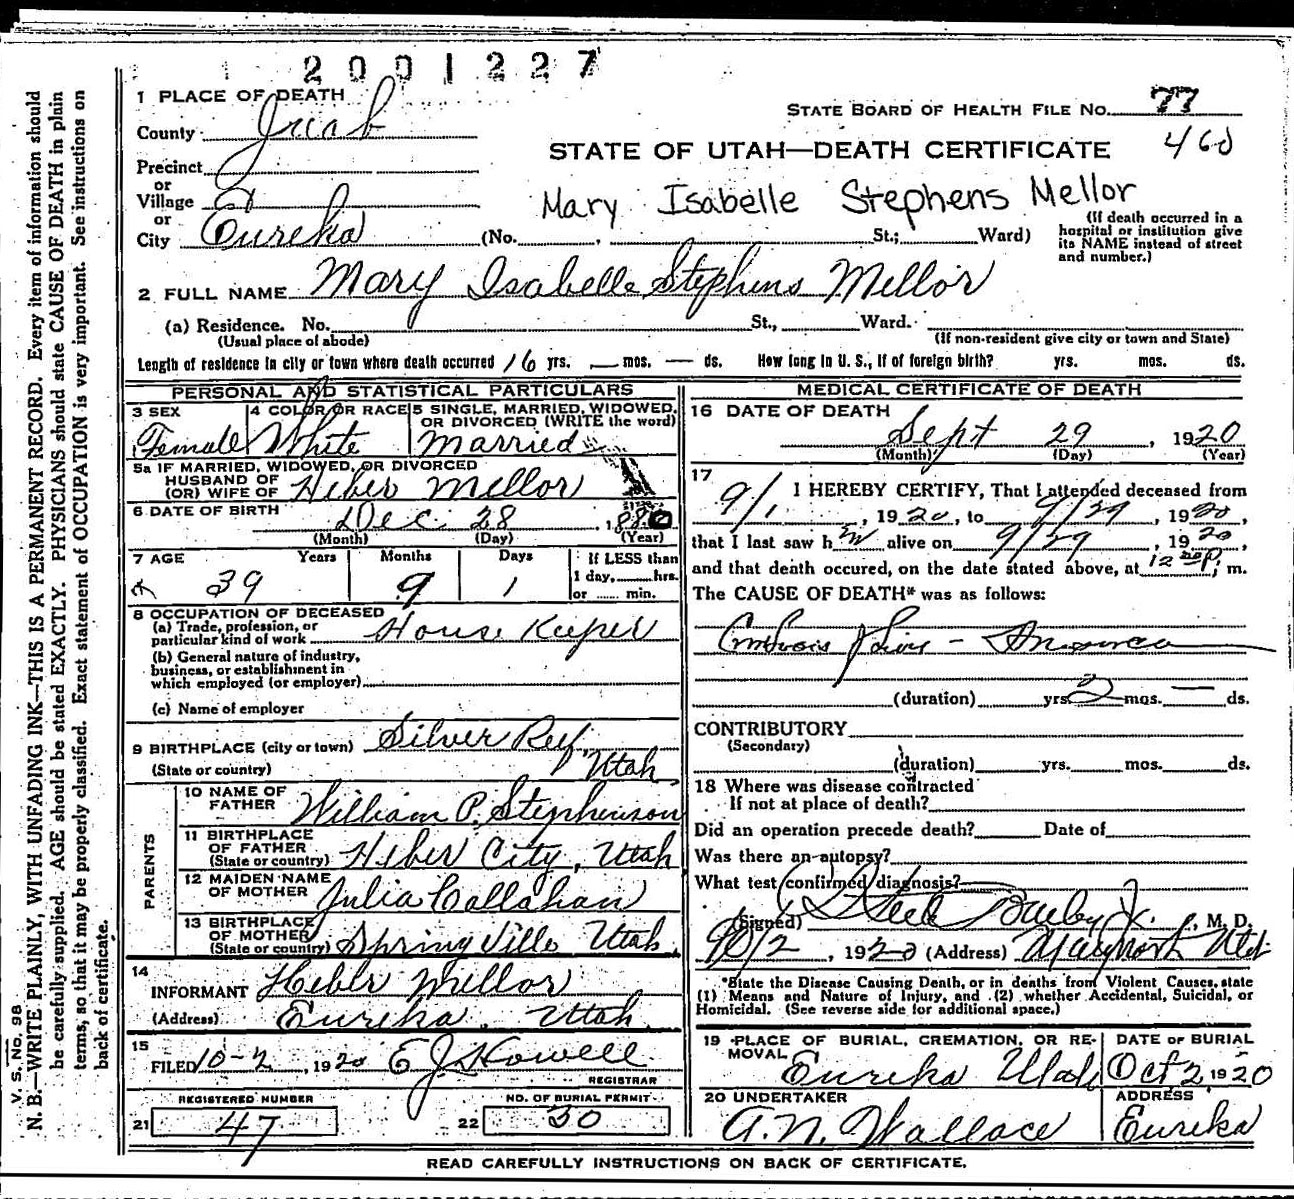 2001227
1 PLACE OF DEATH
County Juab
STATE BOARD OF HEALTH FILE No. 77
460
STATE OF UTAH—DEATH CERTIFICATE
Precinct
or
Village
or
City Eureka
Mary Isabelle Stephens Mellor
(No. , St.; Ward)
(If death occurred in a
hospital or institution give
its NAME instead of street
and number.)
2 FULL NAME Mary Isabelle Stephens Mellor
(a) Residence. No. St., Ward.
(Usual place of abode)
(If non-resident give city or town and State)
Length of residence in city or town where death occurred 16 yrs. — mos. — ds. How long in U. S., if of foreign birth? yrs. mos. ds.
PERSONAL AND STATISTICAL PARTICULARS
3 SEX
Female
4 COLOR OR RACE
White
5 SINGLE, MARRIED, WIDOWED,
OR DIVORCED (WRITE the word)
Married
5a IF MARRIED, WIDOWED, OR DIVORCED
HUSBAND OF
(OR) WIFE OF Heber Mellor
6 DATE OF BIRTH
Dec 28, 1880
(Month) (Day) (Year)
7 AGE Years Months Days
39 9 1
If LESS than
1 day, hrs.
or min.
8 OCCUPATION OF DECEASED
(a) Trade, profession, or
particular kind of work House Keeper
(b) General nature of industry,
business, or establishment in
which employed (or employer)
(c) Name of employer
9 BIRTHPLACE (city or town) Silver Reef,
(State or country) Utah
PARENTS
10 NAME OF
FATHER William P. Stephenson
11 BIRTHPLACE
OF FATHER
(State or country) Heber City, Utah
12 MAIDEN NAME
OF MOTHER Julia Callahan
13 BIRTHPLACE
OF MOTHER
(State or country) Springville Utah
14
INFORMANT Heber Mellor
(Address) Eureka, Utah
15
FILED 10-2, 1920 E J Howell
REGISTRAR
REGISTERED NUMBER
21 47
NO. OF BURIAL PERMIT
22 30
MEDICAL CERTIFICATE OF DEATH
16 DATE OF DEATH
Sept 29, 1920
(Month) (Day) (Year)
17
I HEREBY CERTIFY, That I attended deceased from
9/1, 1920, to 9/29, 1920,
that I last saw her alive on 9/29, 1920,
and that death occured, on the date stated above, at 12 m.
The CAUSE OF DEATH* was as follows:
(duration) yrs. 2 mos. — ds.
CONTRIBUTORY
(Secondary)
(duration) yrs. mos. ds.
18 Where was disease contracted
If not at place of death?
Did an operation precede death? Date of
Was there an autopsy?
What test confirmed diagnosis?
(Signed) Steele Bailey Jr., M. D.
10/2, 1920 (Address) Utah
*State the Disease Causing Death, or in deaths from Violent Causes, state
(1) Means and Nature of Injury, and (2) whether Accidental, Suicidal, or
Homicidal. (See reverse side for additional space.)
19 PLACE OF BURIAL, CREMATION, OR RE-
MOVAL Eureka Utah
DATE OF BURIAL
Oct 2 1920
20 UNDERTAKER
A. N. Wallace
ADDRESS
Eureka
READ CAREFULLY INSTRUCTIONS ON BACK OF CERTIFICATE.
V. S. No. 98
N. B.—WRITE PLAINLY, WITH UNFADING INK—THIS IS A PERMANENT RECORD. Every item of information should
be carefully supplied. AGE should be stated EXACTLY. PHYSICIANS should state CAUSE OF DEATH in plain
terms, so that it may be properly classified. Exact statement of OCCUPATION is very important. See instructions on
back of certificate.